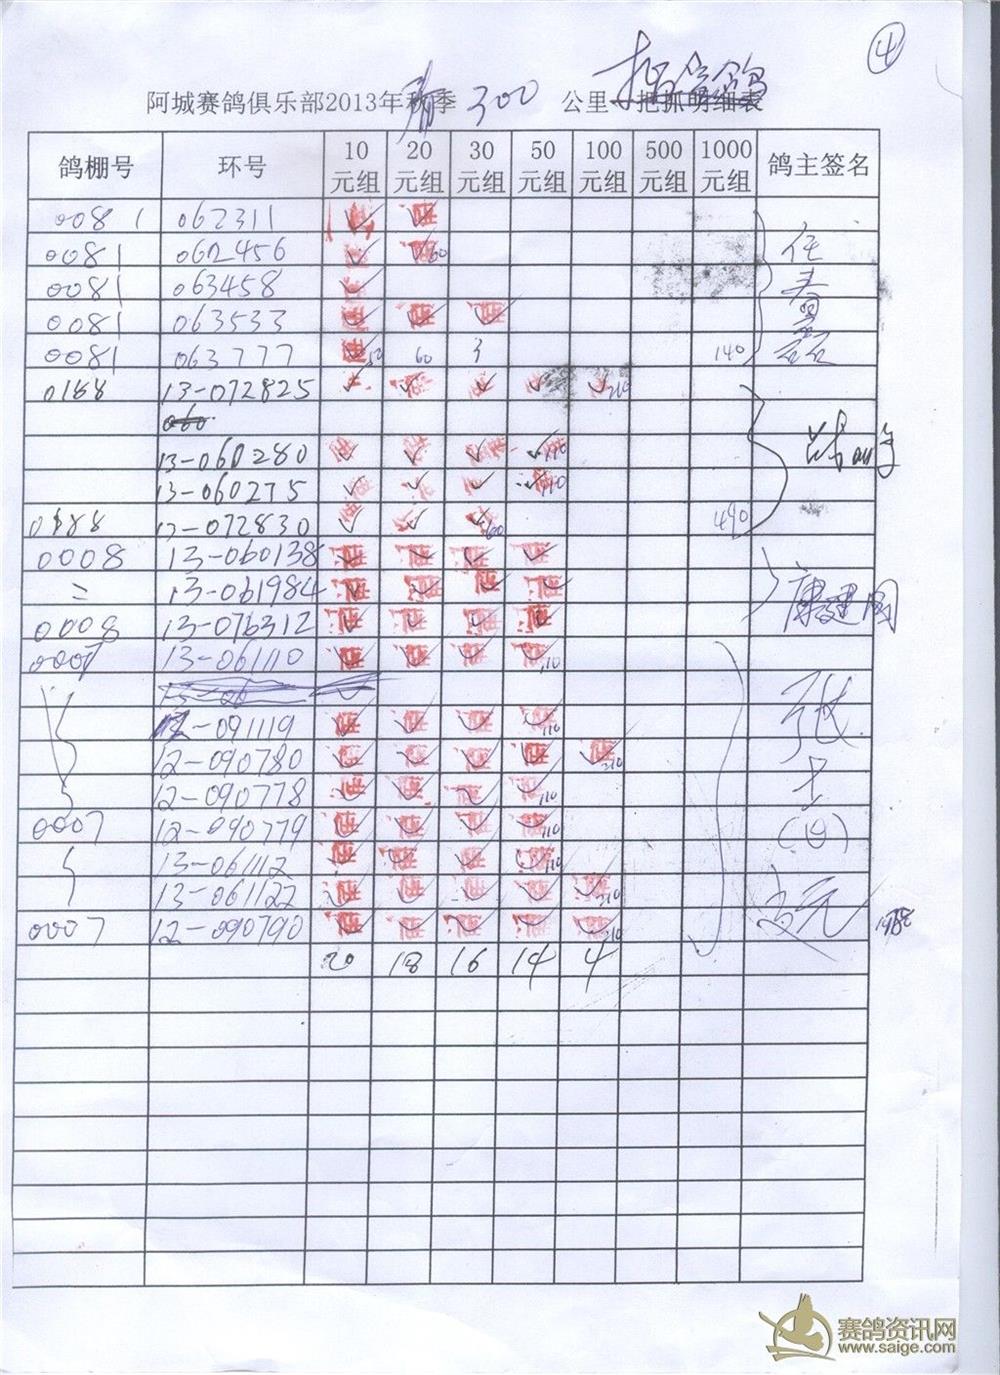 ④
阿城赛鸽俱乐部2013年春季 300 公里 指定鸽
鸽棚号 环号 10元组 20元组 30元组 50元组 100元组 500元组 1000元组 鸽主签名
0081 062311 ✓ ✓
0081 062456 ✓ ✓ 60
0081 063458 ✓
0081 063533 ✓ ✓ ✓
0081 063777 ✓ 10 60 3 140
0188 13-072825 ✓ ✓ ✓ ✓ ✓ 210
13-060280 ✓ ✓ ✓ ✓ 110
13-060275 ✓ ✓ ✓ ✓ 110
0188 13-072830 ✓ ✓ ✓ 60 490
0008 13-060138 ✓ ✓ ✓ ✓
= 13-061984 ✓ ✓ ✓ ✓
0008 13-076312 ✓ ✓ ✓ ✓ 康建国
0007 13-061110 ✓ ✓ ✓ ✓ 110
12-091119 ✓ ✓ ✓ ✓ 110 张
12-090780 ✓ ✓ ✓ ✓ ✓ 210
12-090778 ✓ ✓ ✓ ✓ 110 士
0007 12-090779 ✓ ✓ ✓ ✓ 110
13-061112 ✓ ✓ ✓ ✓ 110
13-061122 ✓ ✓ ✓ ✓ ✓ 210 元
0007 12-090790 ✓ ✓ ✓ ✓ ✓ 210
20 18 16 14 4
赛鸽资讯网
www.saige.com